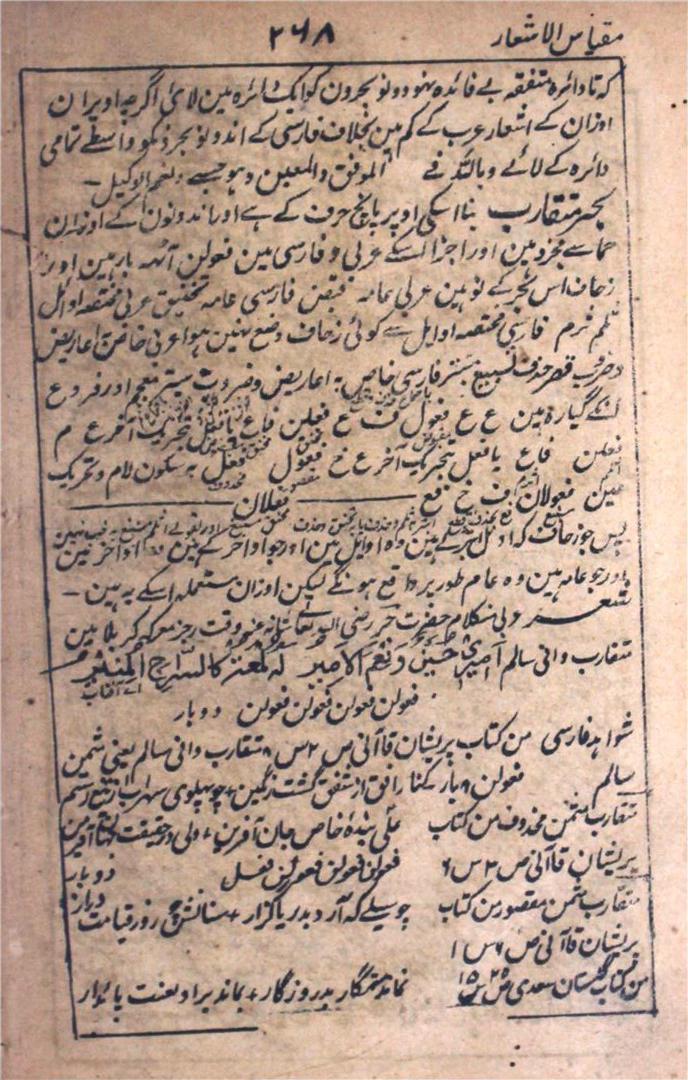 مقیاس الاشعار ۲۶۸
کہ تا دائرہ متفقہ بے فائدہ نہو دونو بحرون کو ایک دائرہ مین لائی اگرچہ اوپر ان
اوزان کے اشعار عرب کے کم ہین بخلاف فارسی کے اند و نو بحر ذکو واسطے تمامی
دائرہ کے لائے و باللہ الموفق والمعین و ہو حسبے و نعم الوکیل۔
بحر متقارب بنا اسکی اوپر پانچ حرف کے ہے اور اندونون کے اوزان
خماسے مجرد ہین اور اجزا اسکے عربی و فارسی مین فعولن آٹھہ بار ہین اور
زحاف اس بحر کے نو ہین عربی عامہ قبض فارسی عامہ تخنیق عربی مختصہ اوایل
ثلم ثرم فارسی مختصہ اوایل سے کوئی زحاف وضع نہین ہوا عربی خاص بہ اعاریض
و ضروب قصر حذف تسبیغ بتر فارسی خاص بہ اعاریض و ضروب اور فروع
انکے گیارہ ہین ع ع فعول ف ع فعلن فاع بتحریک آخر ع م
فعلن فاع یا فعل بتحریک آخر ع خ فعول فعل بہ سکون لام و تحریک
عین فعولان ف خ فع فعلان
پس جو زحاف کہ اوایل کے ہین وہ اوایل مین اور جو اواخر کے ہین وہ اواخر مین
اور جو عامہ ہین وہ عام طور پر واقع ہونگے لیکن اوزان مستعملہ اسکے یہ ہین۔
شعر عربی من کلام حضرت حر رضی اللہ تعالیٰ عنہ وقت رجز معرکہ کربلا مین
متقارب وافی سالم امیری حسین و نعم الامیر لہ لمعۃ کالسراج المنیر
اے آفتاب
فعولن فعولن فعولن فعولن دو بار
شواہد فارسی من کتاب پریشان قاآنی ص ۲ س ۸ متقارب وافی سالم یعنی مثمن
سالم فعولن ۸ بار کنار افق از شفق گشت رنگین + چو پہلوی سہراب از تیغ رستم
متقارب مثمن محذوف من کتاب علی بندۂ خاص جان آفرین + ولی در حقیقت جہان آفرین
پریشان قاآنی ص ۳ س ۶ فعولن فعولن فعولن فعل دو بار
متقارب مثمن مقصور من کتاب چو سیلے کہ آرد بدریا گزار + سنانش چو روز قیامت دراز
پریشان قاآنی ص ۶ س ۱
من کتاب گلستان سعدی ص ۲۵ س ۱۵ نماند ستمگار بد روزگار + بماند برو لعنت پائدار